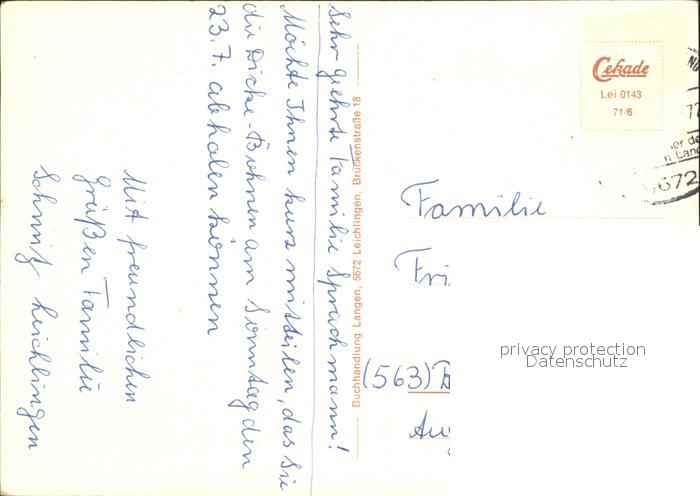 Sehr geehrte Familie Sprachmann!
Möchte Ihnen kurz mitteilen, das Sie
die Dicke-Bohnen am Sonntag den
23.7. abholen können
Mit freundlichen
Grüßen Familie
Schmitz Leichlingen
Buchhandlung Langen, 5672 Leichlingen, Brückenstraße 18
Cekade
Lei 0143
71/6
5672
Familie
Fri
(563)
Au
privacy protection
Datenschutz